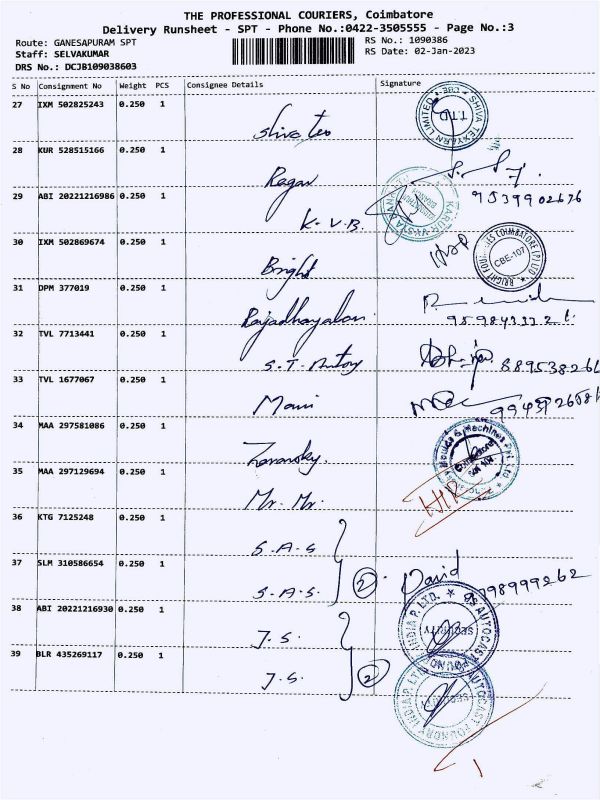 THE PROFESSIONAL COURIERS, Coimbatore
Delivery Runsheet - SPT - Phone No.:0422-3505555 - Page No.:3
Route: GANESAPURAM SPT
RS No.: 1090386
Staff: SELVAKUMAR
RS Date: 02-Jan-2023
DRS No.: DCJB109038603
S No Consignment No Weight PCS Consignee Details Signature
27 IXM 502825243 0.250 1
SHIVA TEXYARN LIMITED CBE T.T.D
Shiva tex
28 KUR 528515166 0.250 1
Ragav
29 ABI 20221216986 0.250 1
9539902676
K.V.B.
KARUR VYSYA BANK
30 IXM 502869674 0.250 1
BRIGHT COIMBATORE (P) LTD CBE-107
Bright
31 DPM 377019 0.250 1
Rajadhayalan
32 TVL 7713441 0.250 1
S.T. Antony
33 TVL 1677067 0.250 1
Mani
34 MAA 297581086 0.250 1
Moulds & Machines Pvt. Ltd
35 MAA 297129694 0.250 1
Mr. Mr.
36 KTG 7125248 0.250 1
S.A.S
37 SLM 310586654 0.250 1
S.A.S. 2 David
38 ABI 20221216930 0.250 1
AUTOCAST FOUNDRY INDIA P. LTD. SECURITY
J.S.
39 BLR 435269117 0.250 1
J.S. 2
AUTOCAST FOUNDRY INDIA P. LTD. SECURITY